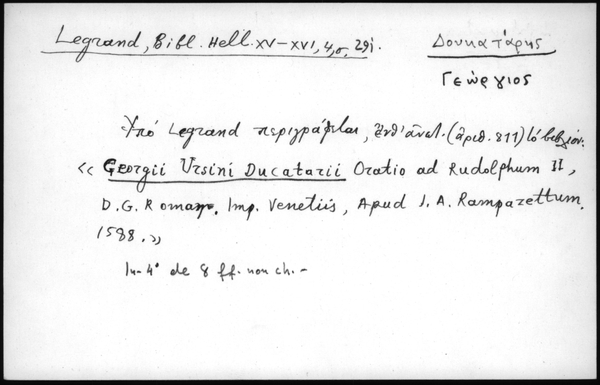 Legrand, Bibl. Hell. XV-XVI, 4, σ. 291.
Δουκατάρης
Γεώργιος
Ὑπό Legrand περιγράφεται, (ἀριθ. 811) τό βιβλίον:
« Georgii Ursini Ducatarii Oratio ad Rudolphum II,
D. G. Roman. Imp. Venetiis, Apud J. A. Rampazettum,
1588. »
In-4° de 8 ff. non ch. -